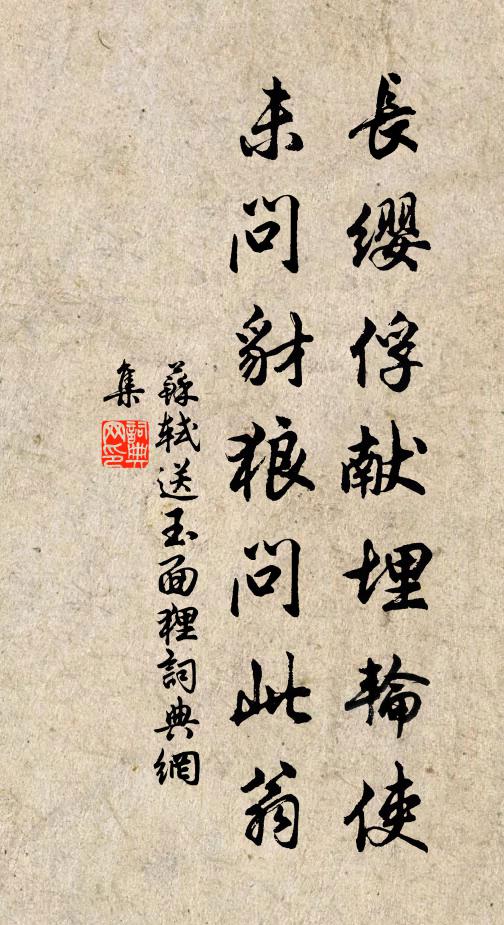 長纓俘献埋輪使
未問豺狼問此翁
蘇軾送玉面狸詞典網
集
詞典
网印